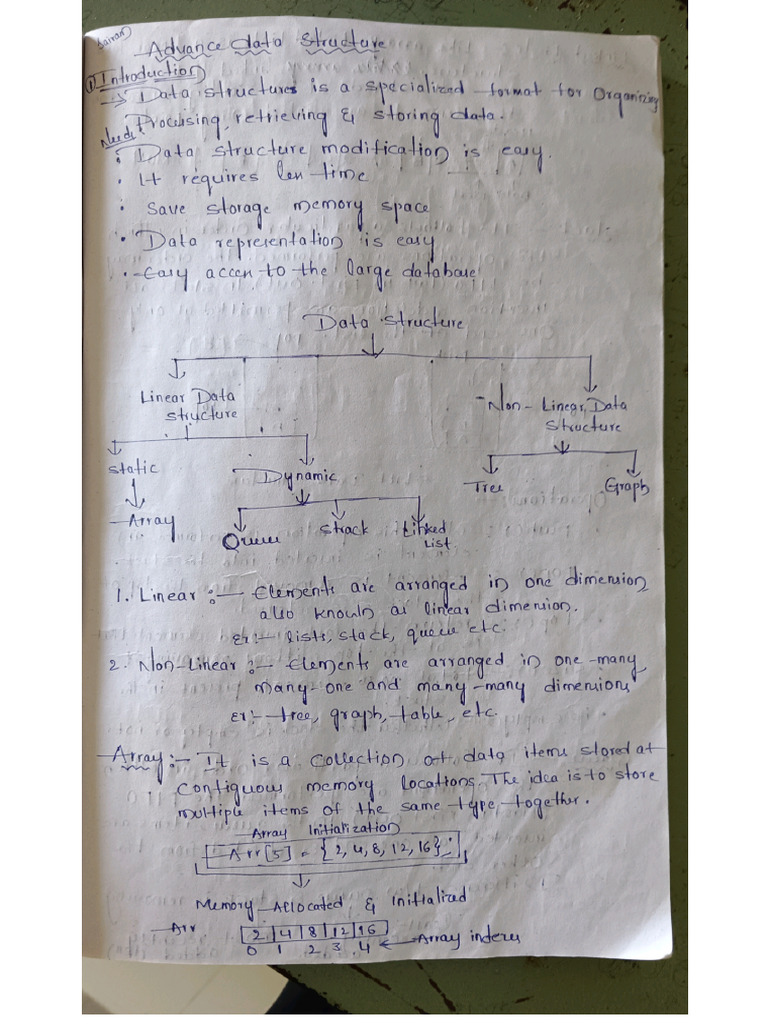 Sairam
Advance data Structure
① Introduction
→ Data structures is a specialized format for Organizing
Processing, retrieving & storing data.
Needs
• Data structure modification is easy.
• It requires less time
• Save storage memory space
• Data representation is easy
• Easy access to the large database
Data structure
Linear Data Structure
Non-Linear Data Structure
Static
Dynamic
Tree
Graph
Array
Queue
Stack
Linked List
1. Linear :- Elements are arranged in one dimension
also known as linear dimension.
Ex:- lists, stack, queue etc.
2. Non-Linear :- Elements are arranged in one-many,
many-one and many-many dimensions
ex:- tree, graph, table, etc.
Array :- It is a collection of data items stored at
contiguous memory locations. The idea is to store
multiple items of the same type, together.
Array Initialization
Arr[5] = {2, 4, 8, 12, 16}
Memory Allocated & Initialized
Arr 2 4 8 12 16
0 1 2 3 4 ← Array indexes